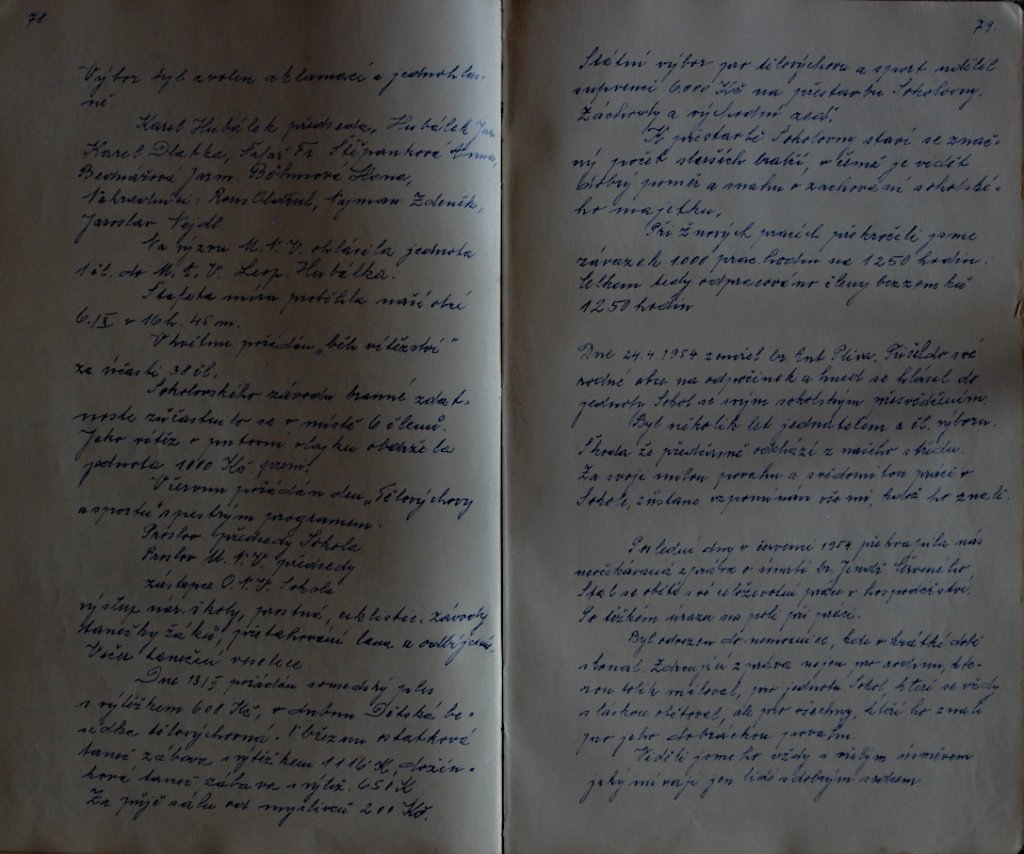 78
Výbor byl zvolen aklamací a jednohlas-
ně.
Karel Hubálek předseda, Hubálek Jar.
Karel Dlabka, Šafař Fr. Štěpánková Anna,
Bednářová Jarm. Böhmová Ilona,
Náhradníci: Rous Oldřich, Nyman Zdeněk,
Jaroslav Nejdl.
Na výzvu M.N.V. ohlásila jednota
1 čl. do M.N.V. Leop. Hubálka.
Štafeta míru proběhla naší obcí
6./V v 16 h. 45 m.
V květnu pořádán „běh vítězství"
za účasti 38 čl.
Sokolovského závodu branné zdat-
nosti zúčastnilo se v místě 6 členů.
Jako vítěz putovní vlajku obdržela
jednota 1000 Kč premi.
V červnu pořádán den „Tělovýchovy
a sportu" s pestrým programem.
Proslov předsedy Sokola
Proslov M.N.V. předsedy
zástupce O.N.V. Sokola
výstup nár. školy, prostná, cyklistic. závody
tanečky žáků, přetahování lana a odbíjená.
Večer taneční veselice.
Dne 13/V pořádán sousedský ples
s výtěžkem 608 Kč, v dubnu Dětská be-
sídka tělovýchovná. V březnu ostatková
taneč. zábava s výtěžkem 1116 K, dožín-
ková taneč. zábava s výtěž. 650 K
Za půjč. sálu od myslivců 200 Kč.
79.
Státní výbor pro tělovýchovu a sport udělil
supvenci 6.000 Kč na přestavbu Sokolovny.
Záchody a východní zeď.
K přestavbě Sokolovny staví se znač-
ný počet starších bratří, v čemž je vidět
dobrý poměr a snahu o zachování sokolské-
ho majetku.
Při žňových pracích překročili jsme
závazek 1000 prac. hodin na 1250 hodin.
Celkem tedy odpracováno členy bezzemků
1250 hodin
Dne 24.4.1954 zemřel br. Ant. Plíva. Přišel do své
rodné obce na odpočinek a hned se hlásil do
jednoty Sokol se svým sokolským přesvědčením.
Byl několik let jednatelem a čl. výboru.
Škoda že předčasně odchází z našeho středu.
Za svoji milou povahu a svědomitou práci v
Sokole, zůstane vzpomínán všemi, kdož ho znali.
Poslední dny v červenci 1954 překvapila nás
neočekávaná zpráva o úmrtí br. Jindř. Červeného
Stal se obětí své celoživotní práce v hospodářství.
Po těžkém úrazu na poli při práci.
Byl odvezen do nemocnice, kde v krátké době
skonal. Zdrcující zpráva nejen pro rodinu, kte-
rou tolik miloval, pro jednotu Sokol, které se vždy
s láskou obětoval, ale pro všechny, kteří ho znali
pro jeho dobráckou povahu.
Viděli jsme ho vždy s milým úsměvem
jaký mívají jen lidé s dobrým srdcem